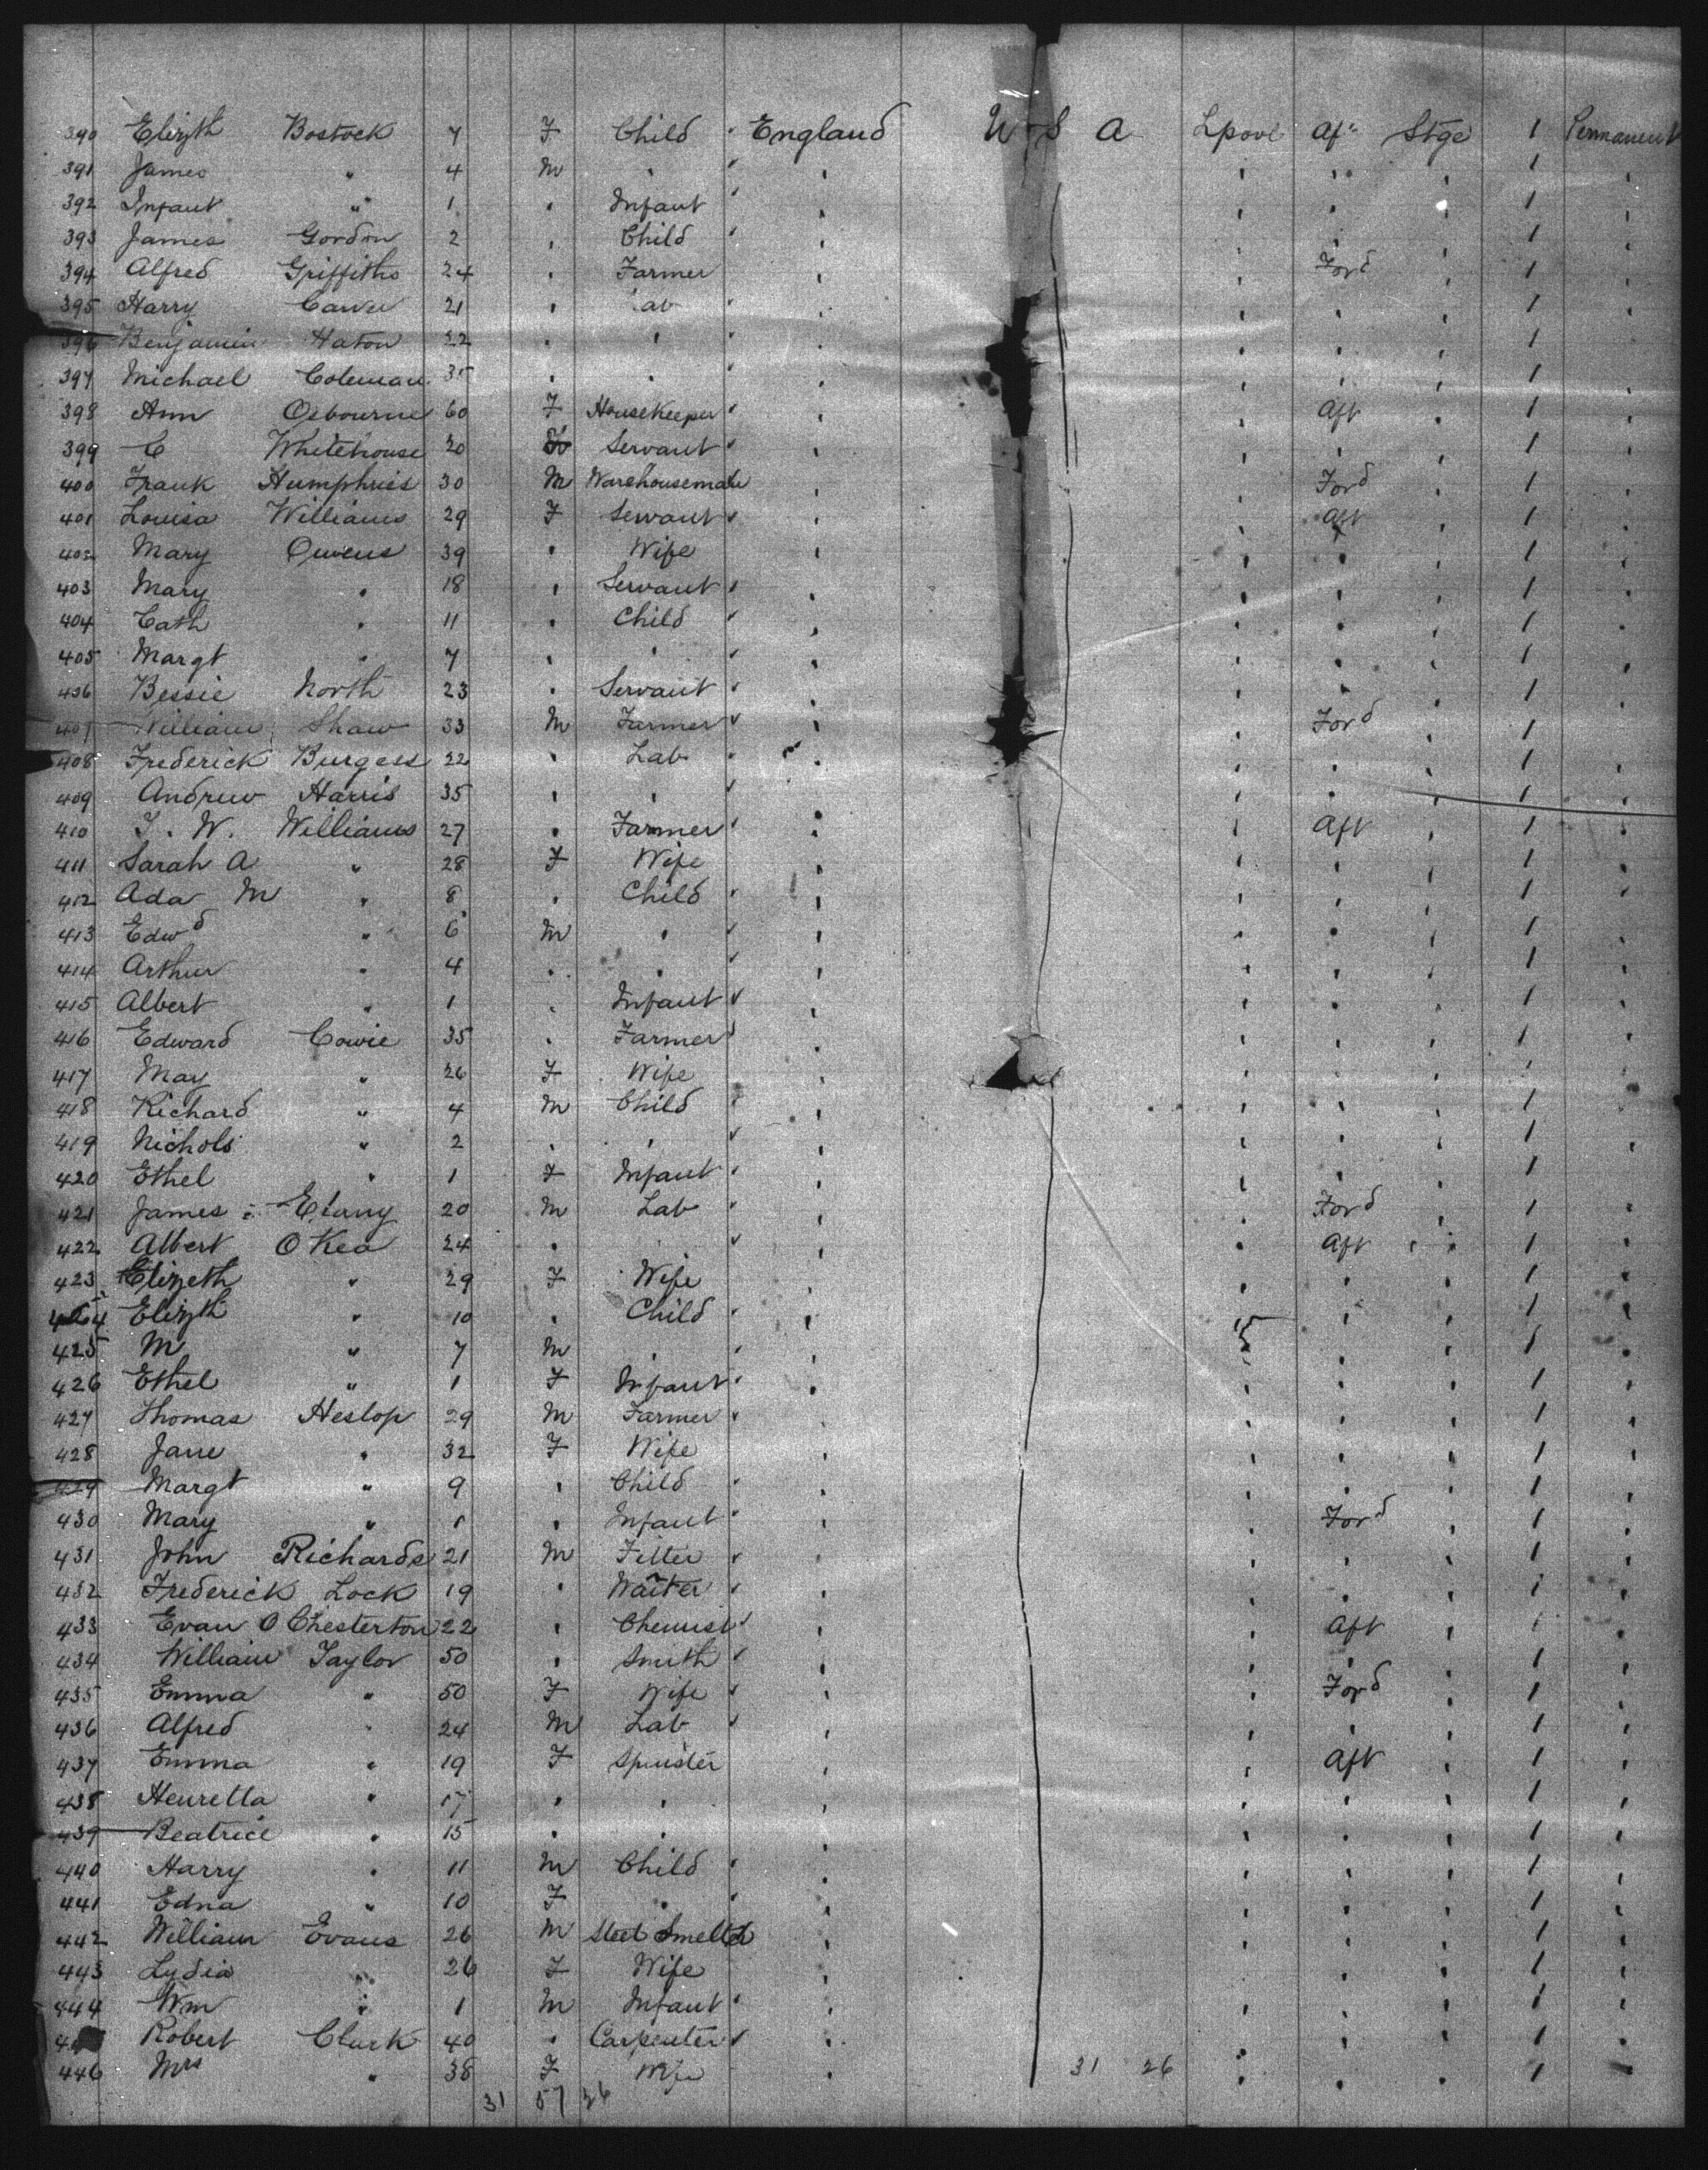 390 Elizth Bostock 7 F Child England U S A Lpool Aft Stge 1 Permanent
391 James " 4 M " " " " " 1 "
392 Infant " 1 " Infant " " " " 1 "
393 James Gordon 2 " Child " " " " 1 "
394 Alfred Griffiths 24 " Farmer " " Ford " 1 "
395 Harry 21 " Lab " " " " 1 "
396 Benjamin Haton 22 " " " " " " 1 "
397 Michael Coleman 35 " " " " " " 1 "
398 Ann Osbourne 60 F Housekeeper " " Aft " 1 "
399 C Whitehouse 20 Servant " " " " 1 "
400 Frank Humphries 30 M Warehouseman " " Ford " 1 "
401 Louisa Williams 29 F Servant " " Aft " 1 "
402 Mary Owens 39 " Wife " " " " 1 "
403 Mary " 18 " Servant " " " " 1 "
404 Cath " 11 " Child " " " " 1 "
405 Margt " 7 " " " " " " 1 "
406 Bessie North 23 " Servant " " " " 1 "
407 William Shaw 33 M Farmer " " Ford " 1 "
408 Frederick Burgess 22 " Lab " " " " 1 "
409 Andrew Harris 35 " " " " " " 1 "
410 J. W. Williams 27 " Farmer " " Aft " 1 "
411 Sarah A " 28 F Wife " " " " 1 "
412 Ada M " 8 " Child " " " " 1 "
413 Edwd " 6 M " " " " " 1 "
414 Arthur " 4 " " " " " " 1 "
415 Albert " 1 " Infant " " " " 1 "
416 Edward Cowie 35 " Farmer " " " " 1 "
417 May " 26 F Wife " " " " 1 "
418 Richard " 4 M Child " " " " 1 "
419 Nichols " 2 " " " " " " 1 "
420 Ethel " 1 F Infant " " " " 1 "
421 James 20 M Lab " " Ford " 1 "
422 Albert O Kea 24 " " " " Aft " 1 "
423 Elizeth " 29 F Wife " " " " 1 "
424 Elizth " 10 " Child " " " " 1 "
425 M " 7 M " " " " " 1 "
426 Ethel " 1 F Infant " " " " 1 "
427 Thomas Heslop 29 M Farmer " " " " 1 "
428 Jane " 32 F Wife " " " " 1 "
429 Margt " 9 " Child " " " " 1 "
430 Mary " 1 " Infant " " Ford " 1 "
431 John Richards 21 M Fitter " " " " 1 "
432 Frederick Lock 19 " Waiter " " " " 1 "
433 Evan O Chesterton 22 " Chemist " " Aft " 1 "
434 William Taylor 50 " Smith " " " " 1 "
435 Emma " 50 F Wife " " Ford " 1 "
436 Alfred " 24 M Lab " " " " 1 "
437 Emma " 19 F Spinster " " Aft " 1 "
438 Henretta " 17 " " " " " " 1 "
439 Beatrice " 15 " " " " " " 1 "
440 Harry " 11 M Child " " " " 1 "
441 Edna " 10 F " " " " " 1 "
442 William Evans 26 M Steel Smelter " " " " 1 "
443 Lydia " 26 F Wife " " " " 1 "
444 Wm " 1 M Infant " " " " 1 "
Robert Clark 40 " Carpenter " " " " 1 "
446 Mrs " 38 F Wife " 31 26 " " " 1 "
31 57 26